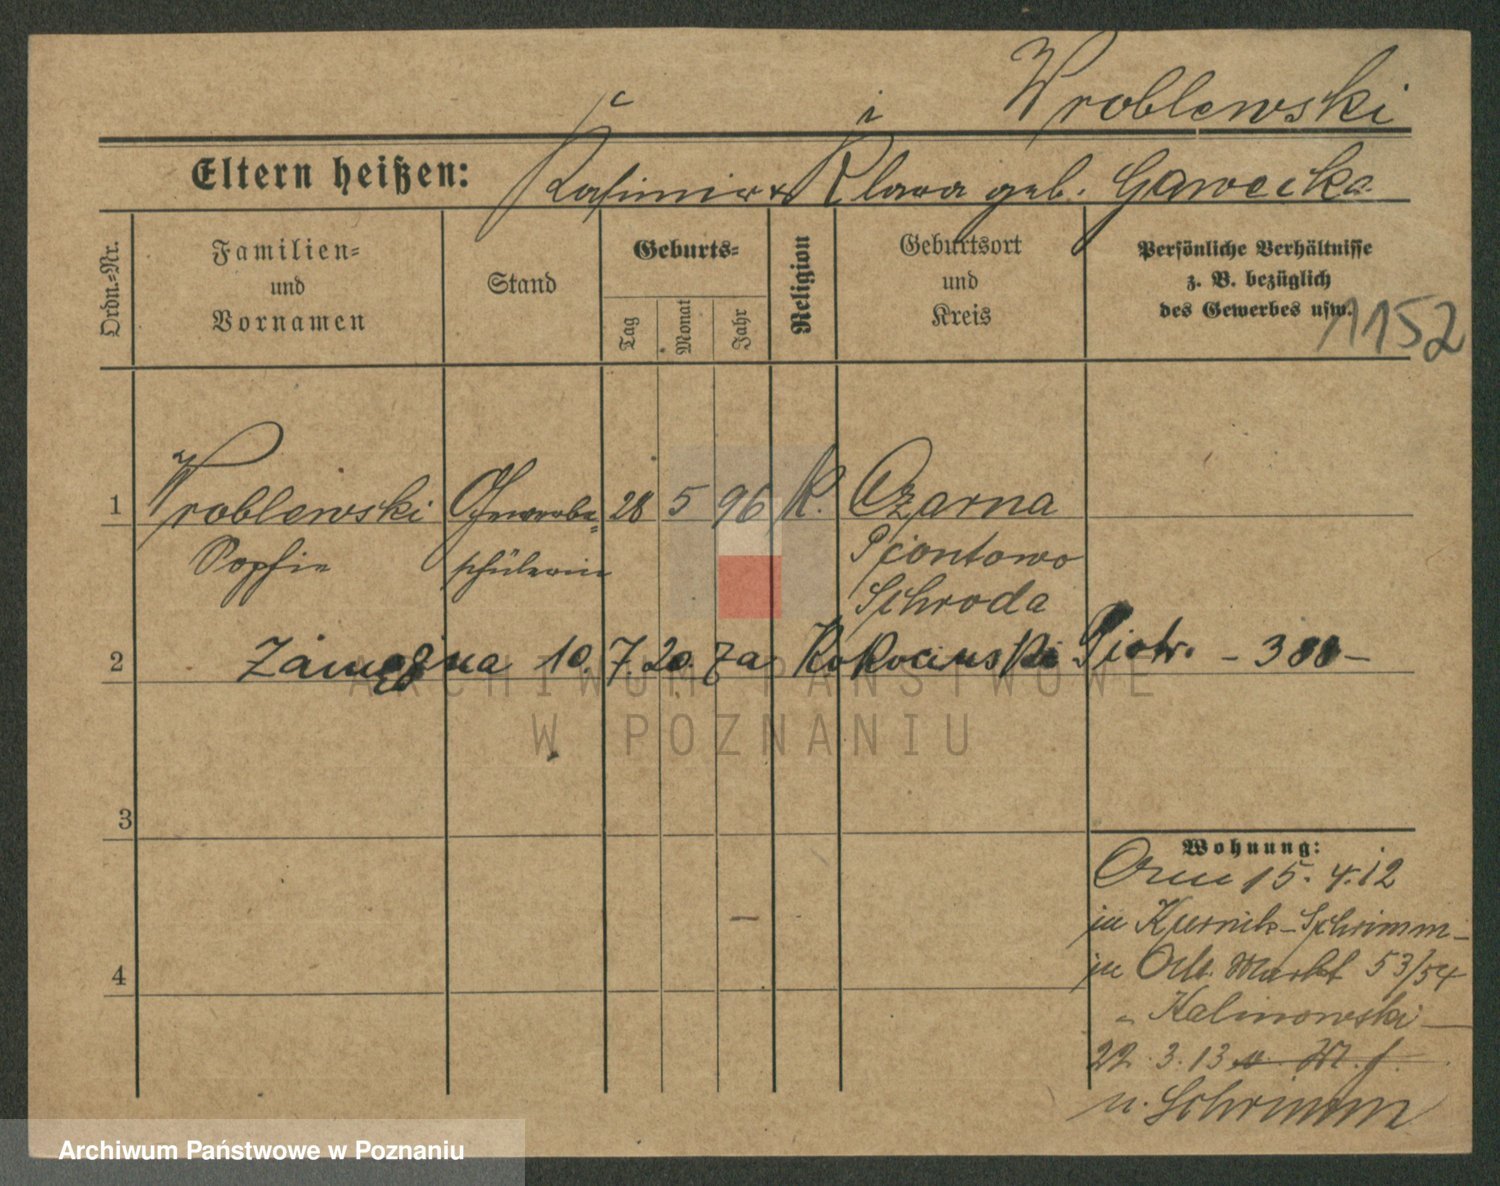 Wroblewski
Eltern heißen: Kasimir u Klara geb. Gawecka
Ordn.-Nr.
Familien-
und
Vornamen
Stand
Geburts-
Tag
Monat
Jahr
Religion
Geburtsort
und
Kreis
Persönliche Verhältnisse
z. B. bezüglich
des Gewerbes usw.
1152
1 Wroblewski Gewerbe= 28 5 96 K. Czarna
Sophie schülerin Piontowo
Schroda
2 Zamężna 10. 7. 20. za Kokocinski Piotr. – 388 –
3
4
Wohnung:
15. 4. 12
in Kurnik-Schrimm-
in Alt. Markt 53/54
" Kalinowski –
22. 3. 13
n. Schrimm
ARCHIWUM PAŃSTWOWE
W POZNANIU
Archiwum Państwowe w Poznaniu